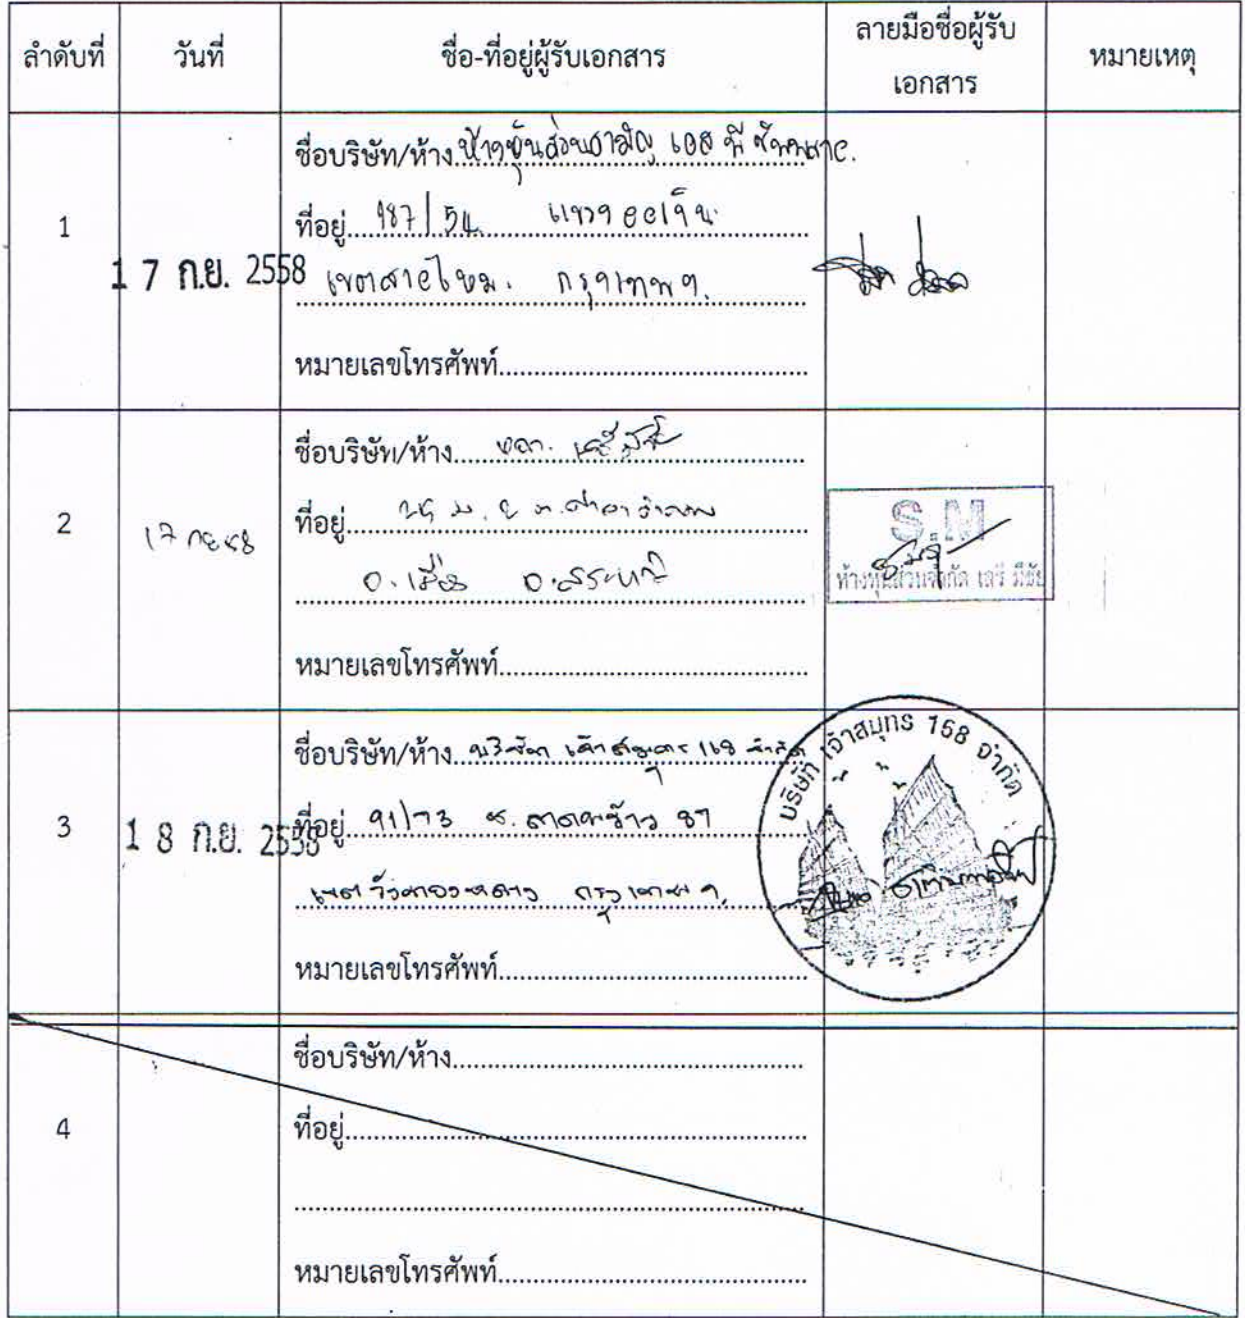 ลำดับที่ วันที่ ชื่อ-ที่อยู่ผู้รับเอกสาร ลายมือชื่อผู้รับ หมายเหตุ
เอกสาร
1
17 ก.ย. 2558
ชื่อบริษัท/ห้าง ห้างหุ้นส่วนสามัญ เอส พี
ที่อยู่ 187/54 แขวงออเงิน
เขตสายไหม. กรุงเทพฯ.
หมายเลขโทรศัพท์
2
17 กย 58
ชื่อบริษัท/ห้าง หจก. เสรี มีชัย
ที่อยู่
อ.เมือง จ.สระบุรี
หมายเลขโทรศัพท์
S.M
ห้างหุ้นส่วนจำกัด เสรี มีชัย
3
18 ก.ย. 2558
ชื่อบริษัท/ห้าง บริษัท เจ้าสมุทร 168 จำกัด
ที่อยู่ 91/73 ซ. ลาดพร้าว 87
เขต วังทองหลาง กรุงเทพฯ
หมายเลขโทรศัพท์
บริษัท เจ้าสมุทร 168 จำกัด
4
ชื่อบริษัท/ห้าง
ที่อยู่
หมายเลขโทรศัพท์